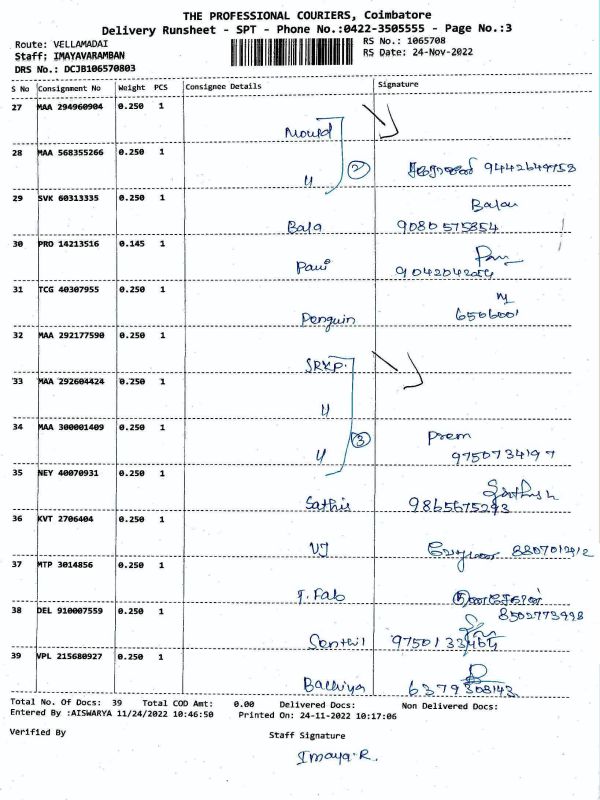 THE PROFESSIONAL COURIERS, Coimbatore
Delivery Runsheet - SPT - Phone No.:0422-3505555 - Page No.:3
Route: VELLAMADAI
RS No.: 1065708
Staff: IMAYAVARAMBAN
RS Date: 24-Nov-2022
DRS No.: DCJB106570803
S No Consignment No Weight PCS Consignee Details Signature
27 MAA 294960904 0.250 1
Mould
28 MAA 568355266 0.250 1
2
9442649758
29 SVK 60313335 0.250 1
Balan
Bala 9080575854
30 PRO 14213516 0.145 1
Pavi
31 TCG 40307955 0.250 1
Penguin 6506001
32 MAA 292177590 0.250 1
SRKP.
33 MAA 292604424 0.250 1
34 MAA 300001409 0.250 1
3 Prem
9750734197
35 NEY 40070931 0.250 1
Sathis 9865675293
36 KVT 2706404 0.250 1
VJ 8807012912
37 MTP 3014856 0.250 1
T. Fab
38 DEL 910007559 0.250 1
8502773998
Senthil
39 VPL 215680927 0.250 1
6379308143
Total No. Of Docs: 39 Total COD Amt: 0.00 Delivered Docs: Non Delivered Docs:
Entered By :AISWARYA 11/24/2022 10:46:50 Printed On: 24-11-2022 10:17:06
Verified By
Staff Signature
Imaya.R.